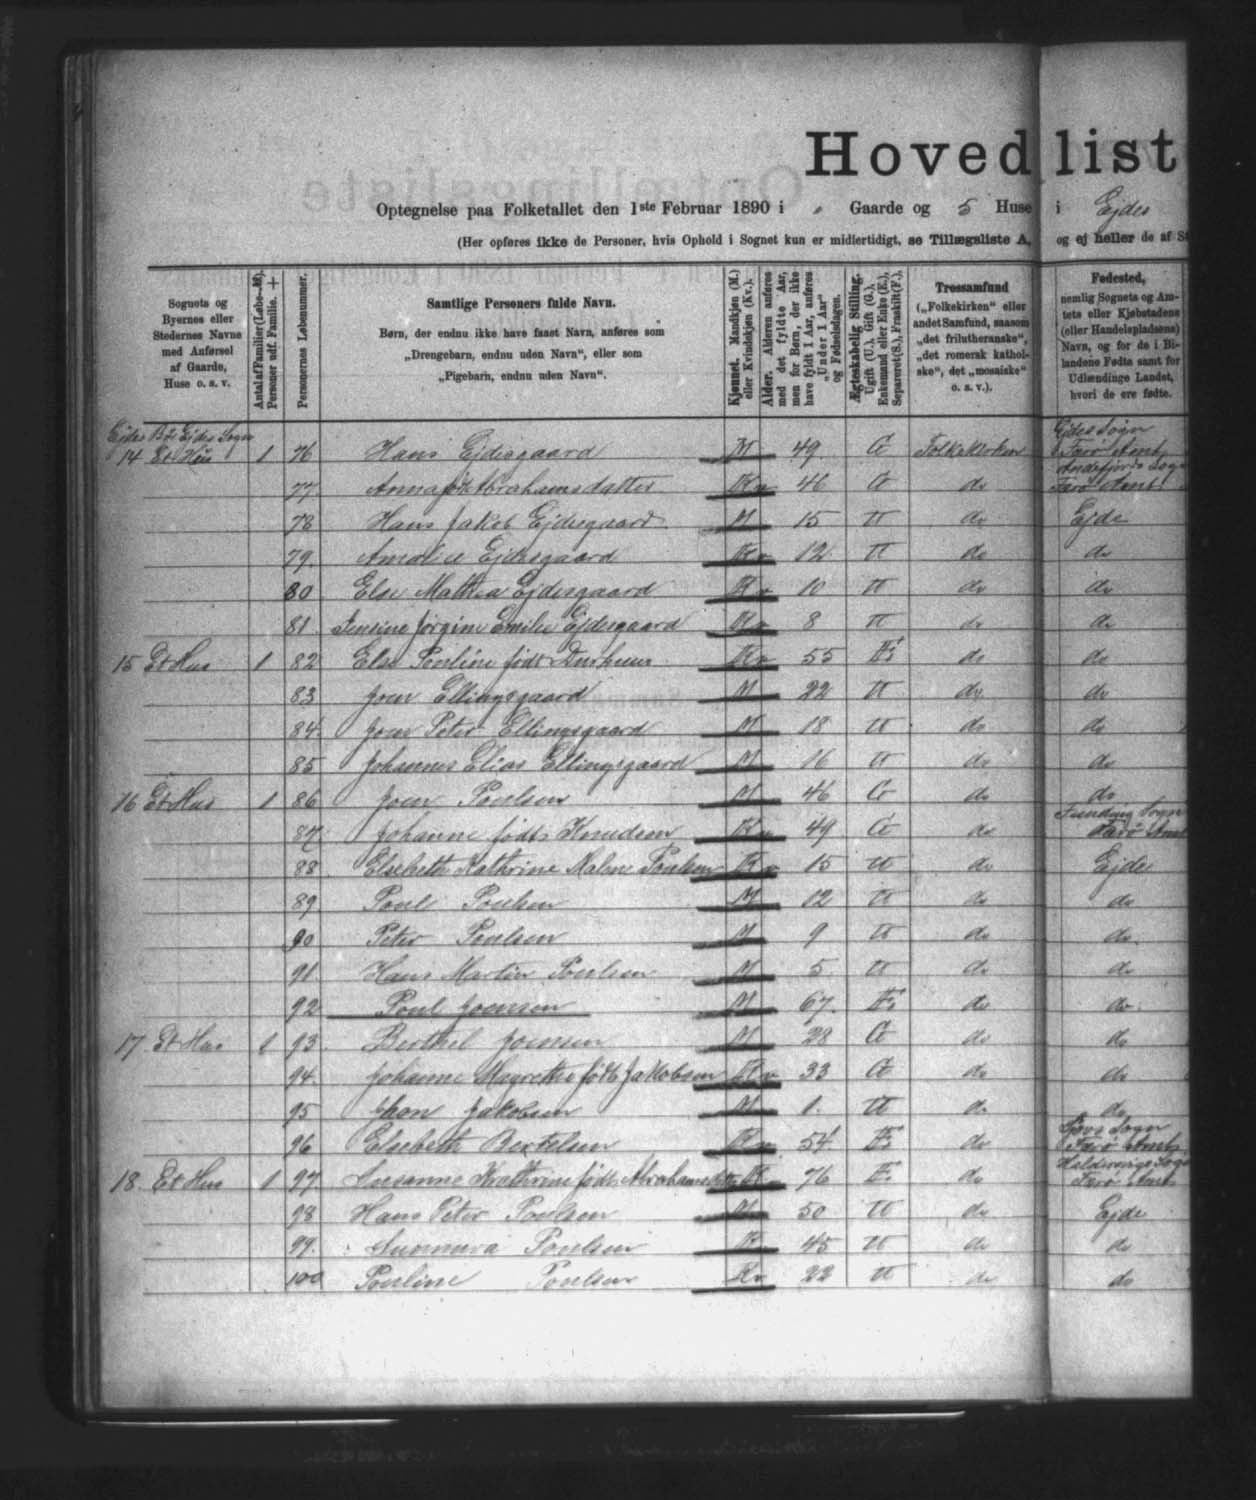 Hovedlist
Optegnelse paa Folketallet den 1ste Februar 1890 i „ Gaarde og 5 Huse i Ejdes
(Her opføres ikke de Personer, hvis Ophold i Sognet kun er midlertidigt, se Tillægsliste A, og ej heller de af S
Sognets og Byernes eller Stedernes Navne med Anførsel af Gaarde, Huse o. s. v.
Antal af Familier (Løbe-M). Personer udf. Familie. +
Personernes Løbenummer.
Samtlige Personers fulde Navn.
Børn, der endnu ikke have faaet Navn, anføres som
„Drengebarn, endnu uden Navn“, eller som
„Pigebarn, endnu uden Navn“.
Kjønnet. Mandkjøn (M.) eller Kvindekjøn (Kv.).
Alder. Alderen anføres med det fyldte Aar, men for Børn, der ikke have fyldt 1 Aar, anføres „Under 1 Aar“ og Fødselsdagen.
Ægteskabelig Stilling. Ugift (U.), Gift (G.), Enkemand eller Enke (E.), Separeret (S.), Fraskilt (F.).
Trossamfund
(„Folkekirken“ eller andet Samfund, saasom „det frilutheranske“, „det romersk katholske“, det „mosaiske“ o. s. v.).
Fødested,
nemlig Sognets og Amtets eller Kjøbstadens (eller Handelspladsens) Navn, og for de i Bilandene Fødte samt for Udlændinge Landet, hvori de ere fødte.
Ejdes Bø. Ejdes Sogn Ejdes Sogn
14 Et Hus 1 76 Hans Ejdesgaard M 49 G Folkekirken Færø Amt
Andefjords Sogn
77 Anna Abrahamsdatter Kv 46 G do Færø Amt
78 Hans Jakob Ejdesgaard M 15 U do Ejde
79 Amalie Ejdesgaard Kv 12 U do do
80 Else Mathea Ejdesgaard Kv 10 U do do
81 Jensine Jørgine Emilie Ejdesgaard Kv 8 U do do
15 Et Hus 1 82 Else Pouline født Kv 55 E do do
83 Joen Ellingsgaard M 22 U do do
84 Joen Peter Ellingsgaard M 18 U do do
85 Johannes Elias Ellingsgaard M 16 U do do
16 Et Hus 1 86 Joen Poulsen M 46 G do do
Funding Sogn
87 Johanne født Knudsen Kv 49 G do Færø Amt
88 Elsebeth Kathrine Malene Poulsen Kv 15 U do Ejde
89 Poul Poulsen M 12 U do do
90 Peter Poulsen M 9 U do do
91 Hans Martin Poulsen M 5 U do do
92 Poul Joensen M 67 E do do
17 Et Hus 1 93 Berthel Joensen M 28 G do do
94 Johanne Magrethe født Jakobsen Kv 33 G do do
95 Jakobsen M 1 U do do
Sogn
96 Elsebeth Bertelsen Kv 54 E do Færø Amt
Sogn
18 Et Hus 1 97 Susanne Kathrine født Abrahamsdatter Kv 76 E do Færø Amt
98 Hans Peter Poulsen M 50 U do Ejde
99 Sunneva Poulsen Kv 45 U do do
100 Pouline Poulsen Kv 22 U do do